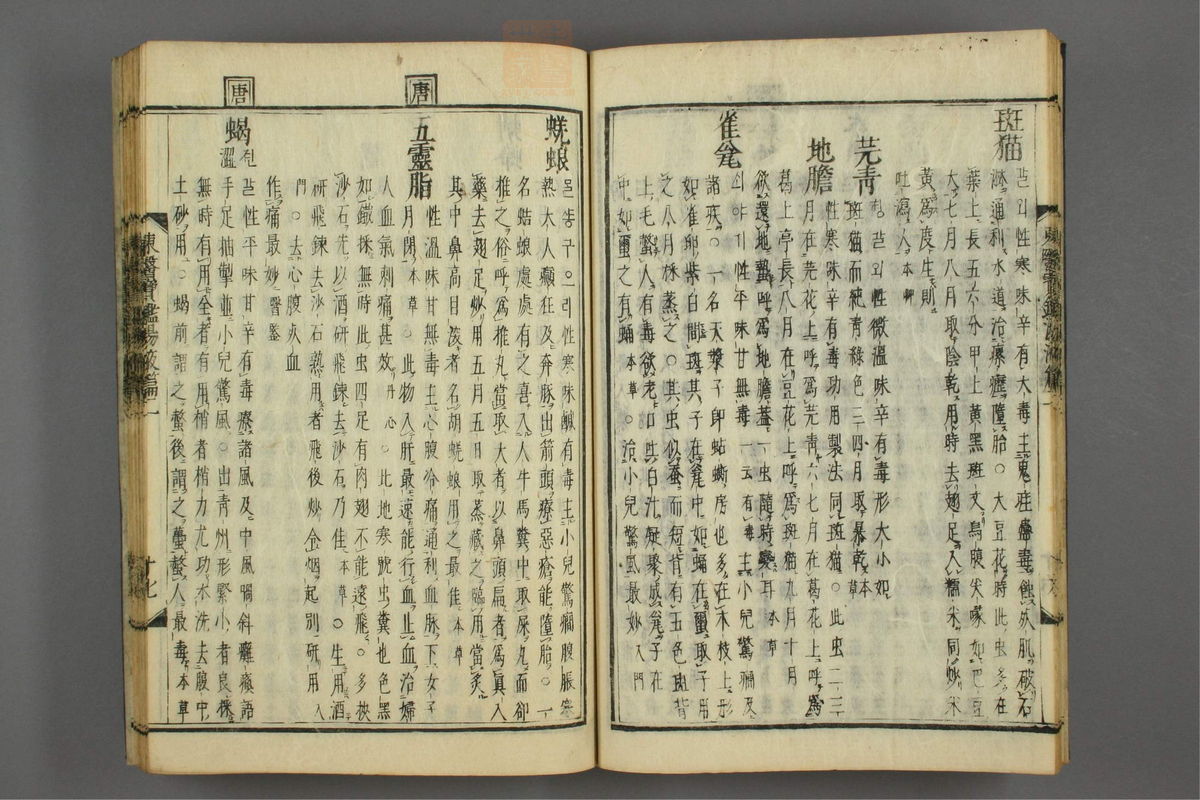 斑猫
갈외性寒味辛有大毒主鬼疰蠱毒蝕死肌破石
淋通利水道治瘰癧墮胎○大豆花時此虫多在
葉上長五六分甲上黃黑斑文烏腹尖喙如巴豆
大七月八月取陰乾用時去翅足入糯米同炒米
黃爲度生則
吐瀉人本草
芫靑
쳥갈외性微溫味辛有毒形大小如
斑猫而純靑綠色三四月取暴乾本草
地膽
性寒味辛有毒功用製法同斑猫○此虫二三
月如在芫花上呼爲芫靑六七月在葛花上呼爲
葛上亭長八月在豆花上呼爲斑猫九月十月
欲還地蟄呼爲地膽盖一虫隨時變耳本草
雀瓮
의야기性平味甘無毒一云有毒主小兒驚癎及
諸疾○一名天漿子卽蛅蟖房也多在木枝上形
如雀卵紫白間斑其子在瓮中如蛹在蠒取子用
之八月採蒸之○其虫似蚕而短背有五色斑背
上毛螫人有毒欲老口吐白汁凝聚成瓮子在
中如蠒之有蛹本草○治小兒驚風最妙入門
蜣蜋
ᄆᆞᆯᄯᅩᆼ구으리性寒味鹹有毒主小兒驚癎腹脹寒
熱大人癲狂及奔豚出箭頭療惡瘡能墮胎○一
名蛣蜋處處有之喜入人牛馬糞中取屎丸而却
推之俗呼爲推丸當取大者以鼻頭扁者爲眞入
藥去翅足炒用五月五日取蒸藏之臨用當灸
其中鼻高目深者名胡蜣蜋用之最佳本草
唐
五靈脂
性溫味甘無毒主心腹冷痛通利血脉下女子
月閉本草○此物入肝最速能行血止血治婦
人血氣刺痛甚效丹心○此地寒號虫糞也色黑
如鐵採無時此虫四足有肉翅不能遠飛○多挾
沙石先以酒硏飛鍊去沙石乃佳本草○生用酒
硏飛鍊去沙石熟用者飛後炒令烟起別硏用入
門○去心腹灾血
作痛最妙醫鑑
唐
蝎
젼갈性平味甘辛有毒療諸風及中風喎斜癱瘓語
澁手足抽掣並小兒驚風○出靑州形緊小者良採
無時有用全者有用梢者梢力尤功水洗去腹中
土砂用○蝎前謂之螫後謂之蠆螫人最毒本草
東醫寶鑑湯液篇二
十七